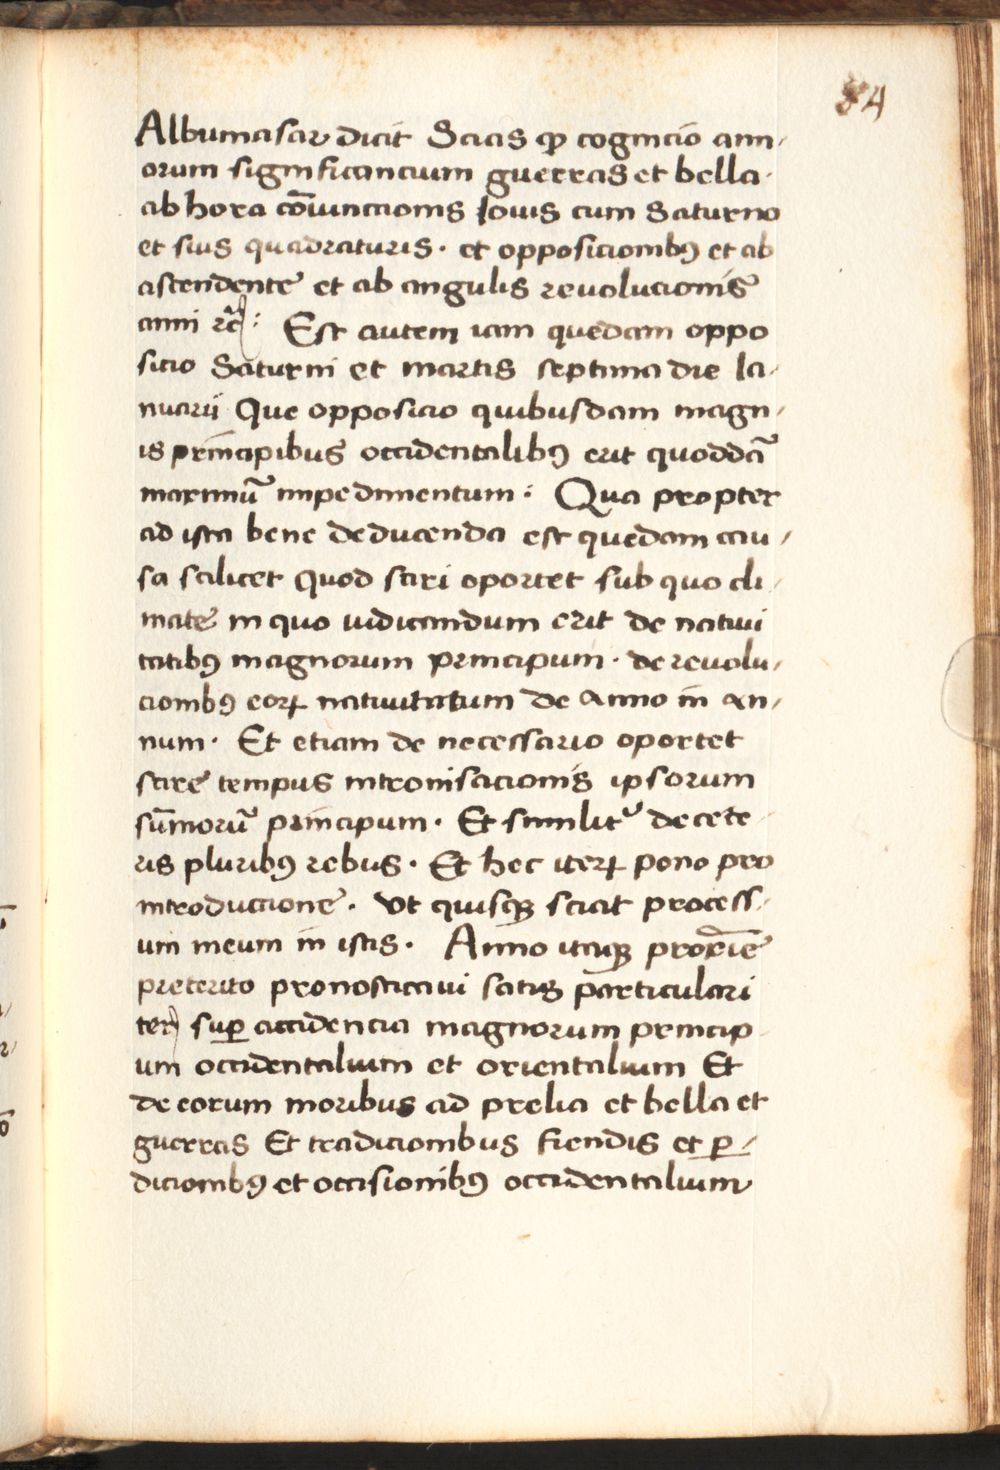 84
Albumasar dicit Scias ꝙ cognicio ann-
orum significancium guerras et bella.
ab hora co̅iunccionis Iouis cum Saturno
et siuis quadraturis. et opposicionibꝰ et ab
ascendente et ab angulis reuolucionis
anni ꝛc̃: Est autem iam quedam oppo
sicio Saturni et martis septima die Ia-
nuarii Que opposicio quibusdam magn-
is principibus occidentalibꝰ erit quoddã
maximũ inpedimentum: Qua propter
ad ista bene deducenda est quedam cau-
sa scilicet Quod sciri oportet sub quo cli-
mate in quo iudicandum erit de natiui
tatibꝰ magnorum principum. de reuolu-
cionibꝰ eoꝝ natiuitatum de Anno in An-
num. Et etiam de necessario oportet
scire tempus intronisacionis ipsorum
sum̅orũ principum. Et similitᷣ de cete-
ris pluribꝰ rebus. Et hec iteꝝ pono pro
introduccione. Vt quisqꝫ sciat process-
um meum in istis. Anno itaqꝫ proxĩe
preterito pronosticaui satis particulari
ter suꝑ accidencia magnorum princip-
um occidentalium et orientalium Et
de eorum moribus ad prelia et bella et
guerras Et tradicionibus fiendis et ꝑ-
dicionibꝰ et occisionibꝰ occidentalium